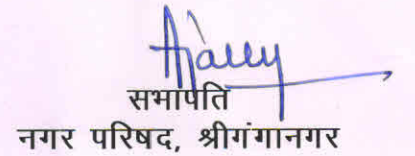 सभापति
नगर परिषद, श्रीगंगानगर